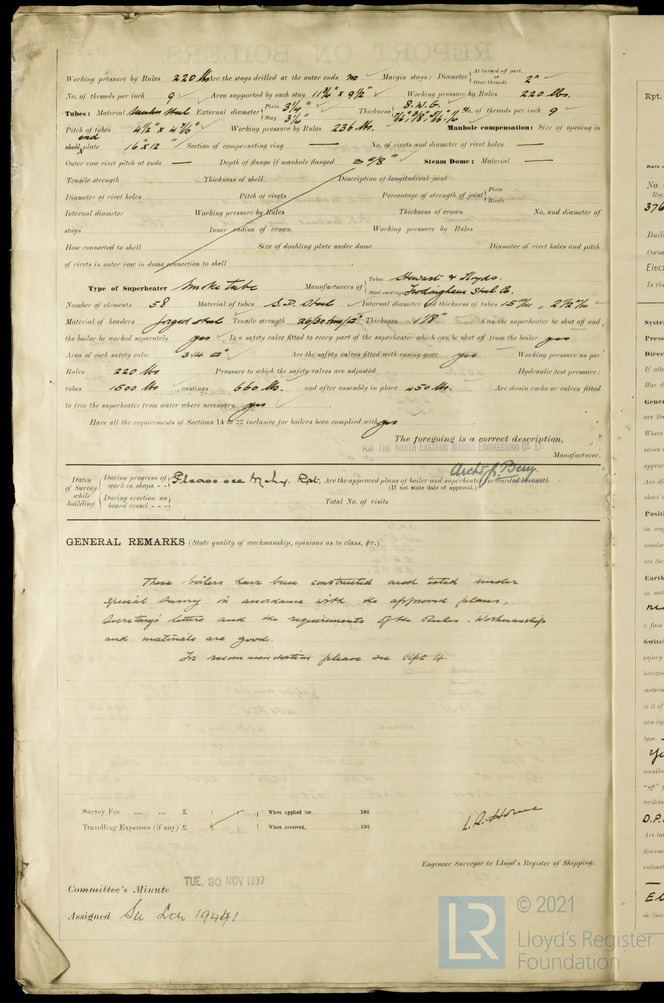 Working pressure by Rules 220 lbs Are the stays drilled at the outer ends no Margin stays: Diameter { At turned off part, or Over threads 2"
No. of threads per inch 9 Area supported by each stay Working pressure by Rules 220 lbs.
Tubes: Material External diameter { Plain 3¼" Stay 3¼" Thickness { S.W.G. No. of threads per inch 9
Pitch of tubes Working pressure by Rules 236 lbs. Manhole compensation: Size of opening in
end
shell plate 16" x 12" Section of compensating ring — No. of rivets and diameter of rivet holes —
Outer row rivet pitch at ends — Depth of flange if manhole flanged 3 5/8" Steam Dome: Material —
Tensile strength Thickness of shell Description of longitudinal joint
Diameter of rivet holes Pitch of rivets Percentage of strength of joint { Plate Rivets
Internal diameter Working pressure by Rules Thickness of crown No. and diameter of
stays Inner radius of crown Working pressure by Rules
How connected to shell Size of doubling plate under dome Diameter of rivet holes and pitch
of rivets in outer row in dome connection to shell
Type of Superheater Smoke Tube Manufacturers of { Tubes Stewart & Lloyds. Steel castings Frodingham Steel Co.
Number of elements 58 Material of tubes S.D. Steel Internal diameter and thickness of tubes 15 m/m, 2½ m/m
Material of headers forged steel Tensile strength 26/30 tons/□" Thickness 1 1/8" Can the superheater be shut off and
the boiler be worked separately yes Is a safety valve fitted to every part of the superheater which can be shut off from the boiler yes
Area of each safety valve 3.14 □" Are the safety valves fitted with easing gear yes Working pressure as per
Rules 220 lbs Pressure to which the safety valves are adjusted Hydraulic test pressure:
tubes 1500 lbs castings 660 lbs. and after assembly in place 450 lbs. Are drain cocks or valves fitted
to free the superheater from water where necessary yes
Have all the requirements of Sections 14 to 22 inclusive for boilers been complied with yes
The foregoing is a correct description,
FOR THE NORTH EASTERN MARINE ENGINEERING Co. Ld.
Manufacturer.
Dates of Survey while building { During progress of work in shops - - Please see Mchy. Rpt. Are the approved plans of boiler and superheater forwarded herewith
(If not state date of approval.)
During erection on board vessel - - - Total No. of visits
GENERAL REMARKS (State quality of workmanship, opinions as to class, &c.)
These boilers have been constructed and tested under
special survey in accordance with the approved plans,
Secretary's letters and the requirements of the Rules. Workmanship
and materials are good.
For recommendation please see Rpt 4.
Survey Fee ... ... £ : : When applied for, 193
Travelling Expenses (if any) £ : : When received, 193
L.R. Horne
Engineer Surveyor to Lloyd's Register of Shipping.
Committee's Minute TUE. 30 NOV 1937
Assigned See
© 2021
LR Lloyd's Register
Foundation
Rpt.
No.
376
Elect